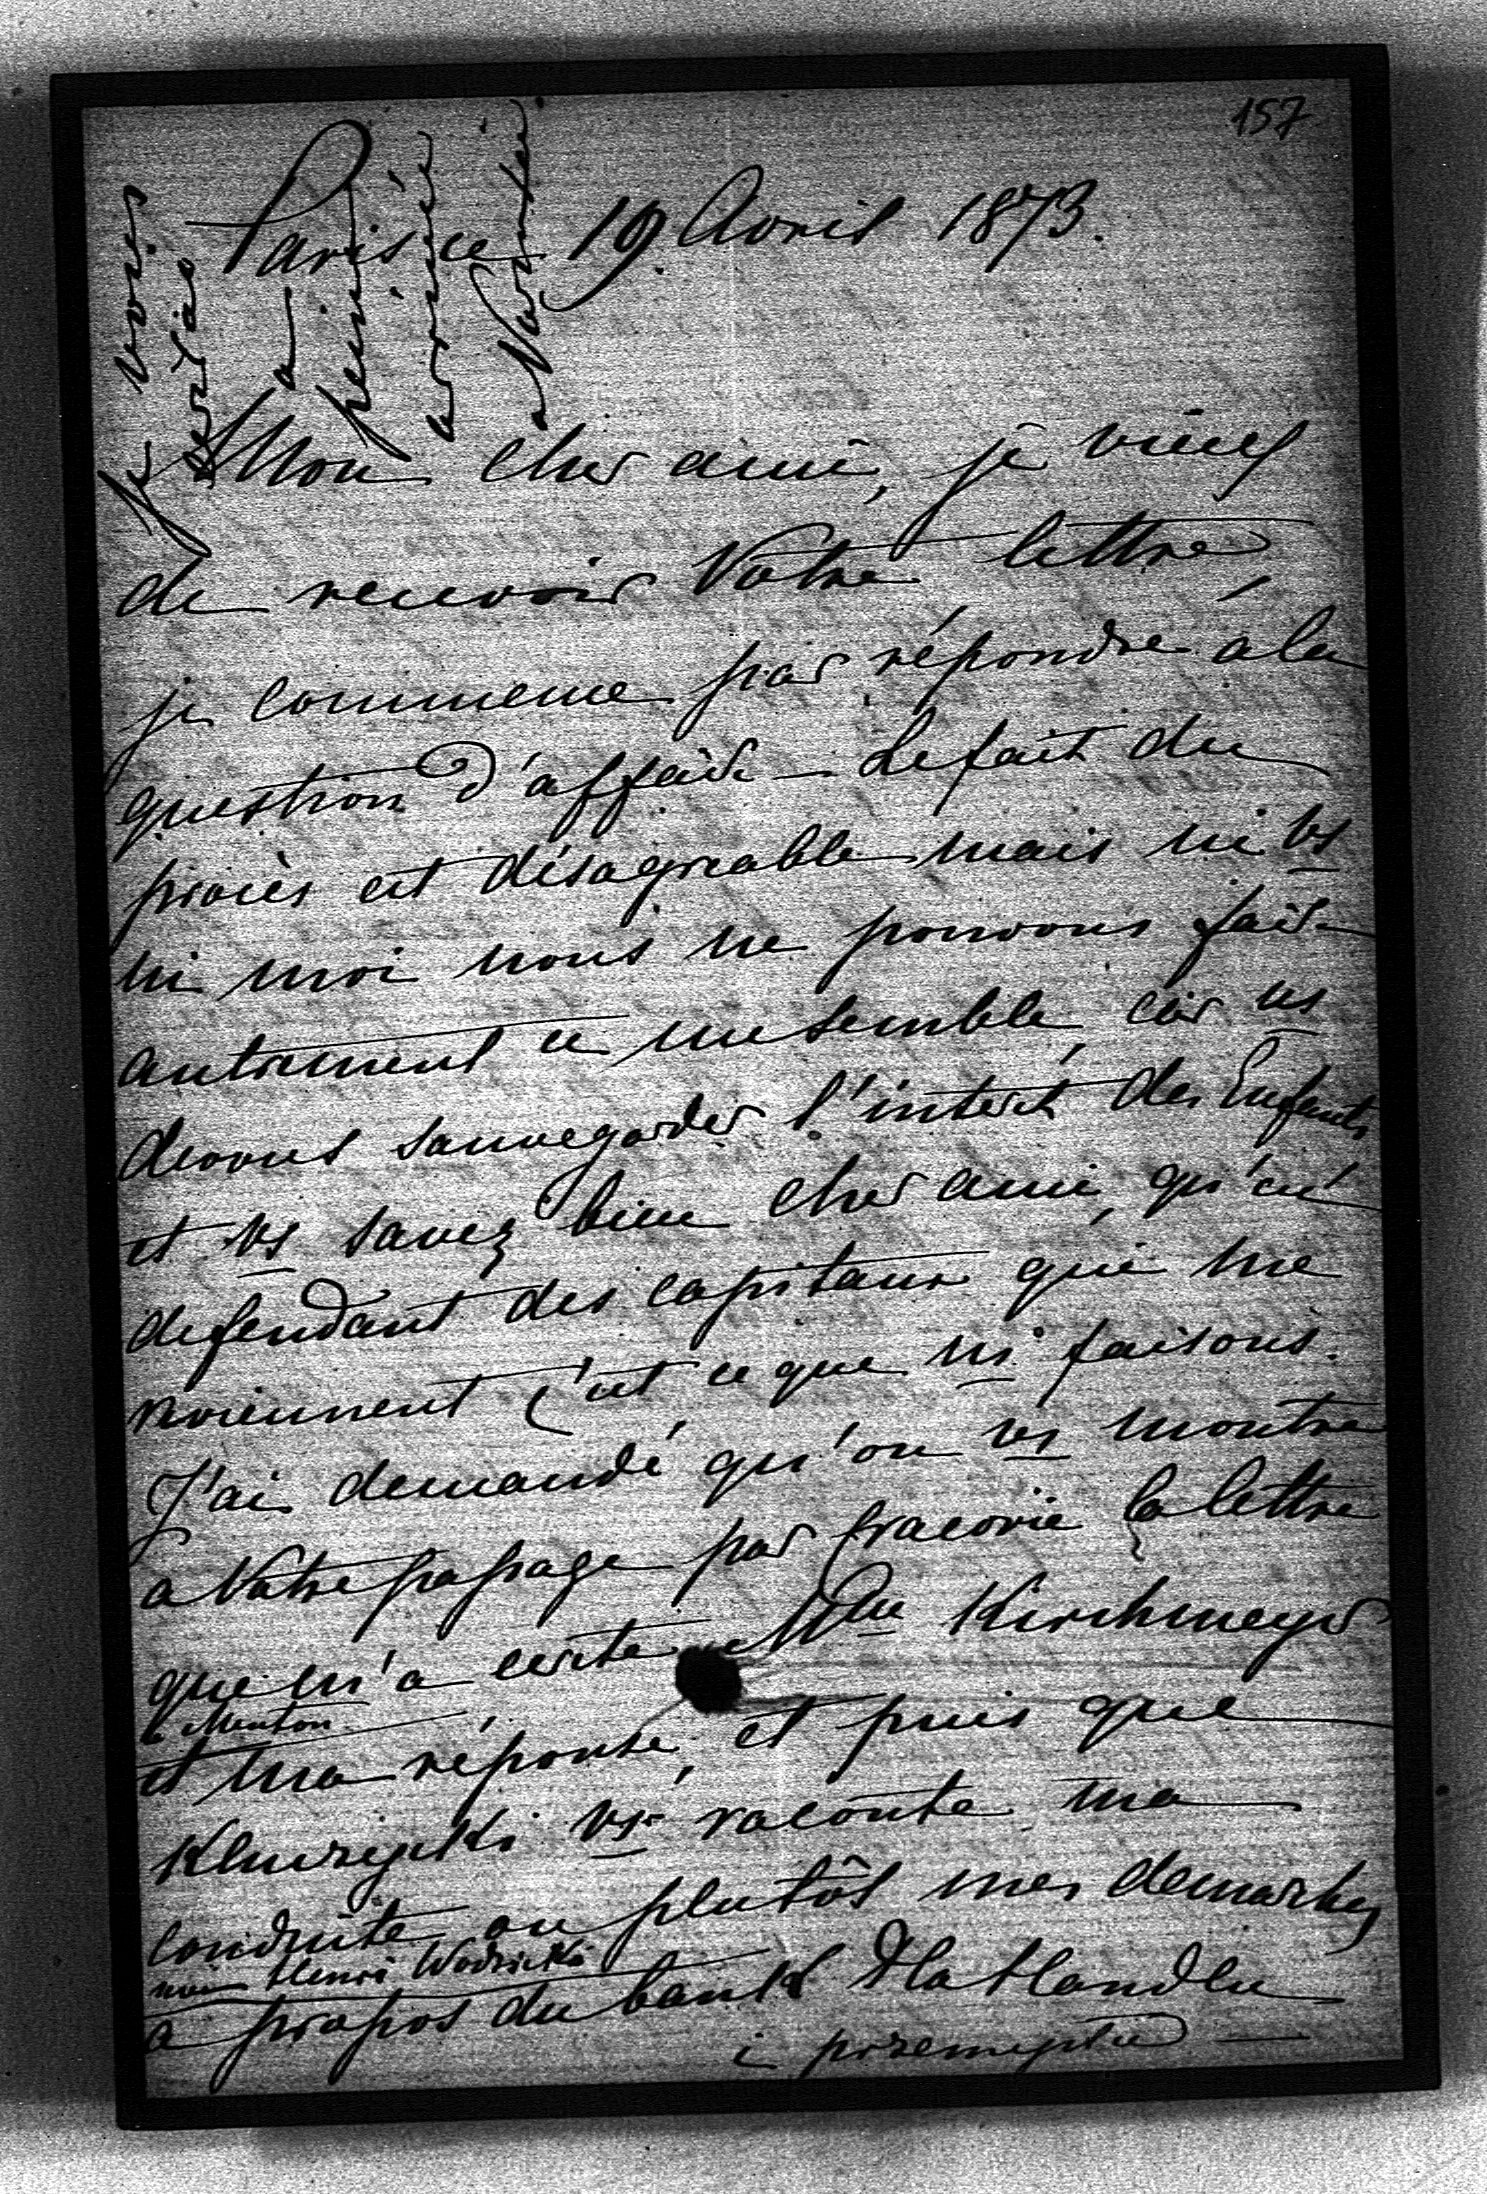 157
Paris ce 19 Avril 1873.
Je vous
a
peine
arrivée
Mon cher ami, je viens
de recevoir Votre lettre,
je commence par répondre à la
question d'affaire — Le fait du
procès est désagreable mais ni vs
ni moi nous ne pouvons faire
autrement ce me semble, car ns
devons sauvegarder l'interêt des Enfants
et vs savez bien cher ami, qu'en
defendant des capitaux qui me
reviennent c'est ce que ns faisons.
J'ai demandé qu'on vs montre
a Votre passage par Cracovie la lettre
que m'a ecrite Mde Kirchmeyer
Menton
et ma réponse, et puis que
vs raconte ma
conduite ou plutôt mes demarches
Henri Wodzicki
a propos du bank dla Handlu
i przemysłu —